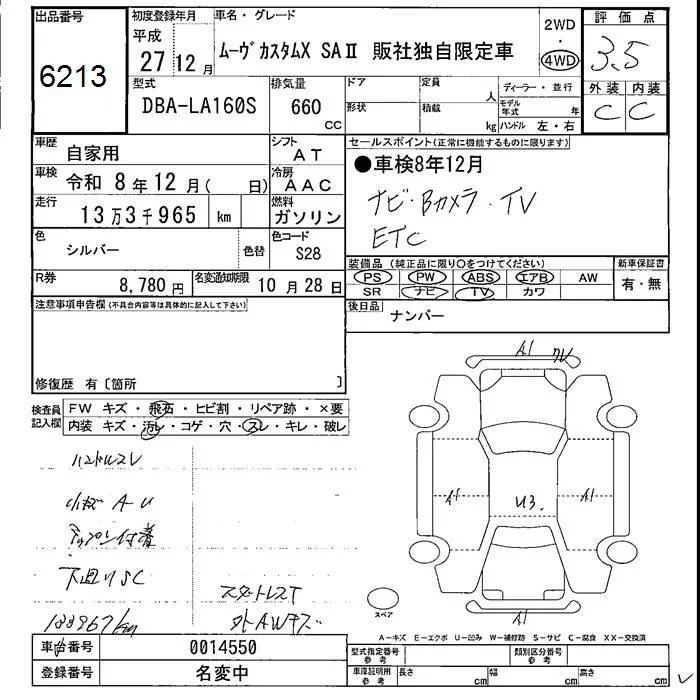 出品番号
6213
初度登録年月
平成
27 12月
車名・グレード
ムーヴ カスタムX SAⅡ 販社独自限定車
2WD
・
4WD
評価点
3.5
外装 内装
C C
型式
DBA-LA160S
排気量
660
CC
ドア
形状
定員
人
積載
kg
ディーラー・並行
モデル年式 年
ハンドル 左・右
車歴
自家用
シフト
AT
車検
令和 8年12月( 日)
冷房
AAC
走行
13万3千965 km
燃料
ガソリン
色
シルバー
色替
色コード
S28
R券
8,780円
名変通知期限
10月28日
セールスポイント(正常に機能するものに限ります)
●車検8年12月
ナビ・Bカメラ・TV
ETC
装備品(純正品に限り○をつけてください)
PS PW ABS エアB AW
SR ナビ TV カワ
新車保証書
有・無
後日品
ナンバー
注意事項申告欄(不具合内容等は具体的に記入して下さい)
修復歴 有〔箇所 〕
検査員
記入欄
FW キズ・飛石・ヒビ割・リペア跡・×要
内装 キズ・汚レ・コゲ・穴・スレ・キレ・破レ
ハンドルスレ
小キズ A U
下廻りSC
133967km
スタートレスT
外AWキズ
A1
A1
U3.
A1
A1
スペア
A-キズ E-エクボ U-凹み W-補修跡 S-サビ C-腐食 XX-交換済
車台番号
0014550
登録番号
名変中
型式指定番号
参考
類別区分番号
参考
車庫証明用
参考
長さ cm
幅 cm
高さ cm